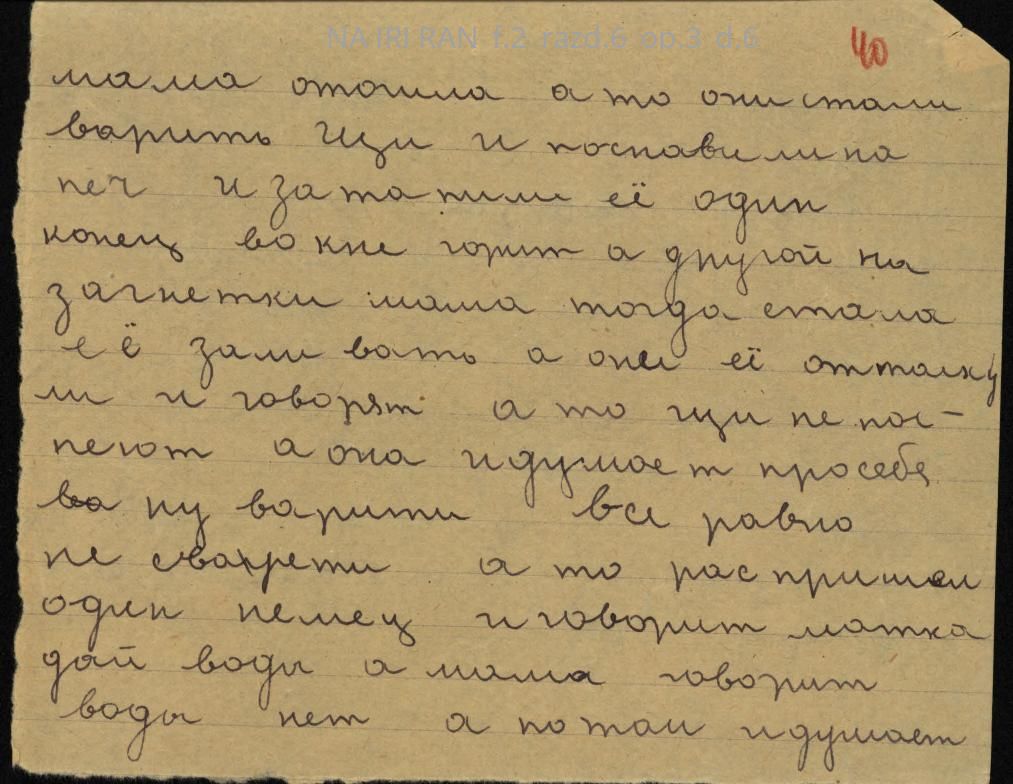 NA IRI RAN f.2 razd.6 op.3 d.6
40
мама отошла а то они стали
варить щи и поставили на
печ и затопили её один
конец вокне горит а другой на
загнетки мама тогда стала
её заливать а они её оттолкну
ли и говорят а то щи не пос-
пеют а она идумает просебя
ну варити все равно
не сварети а то рас пришел
один немец иговорит матка
дай воды а мама говорит
воды нет а потом идумает